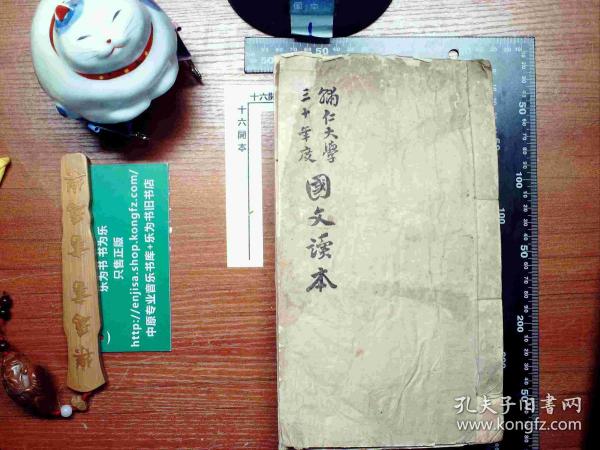 輔仁大學
三十年度
國文讀本
十六開
十六開本
乐为书 书为乐
只售正版
http://enjisa.shop.kongfz.com/
中原专业音乐书库+乐为书旧书店
孔夫子旧书网
www.kongfz.com